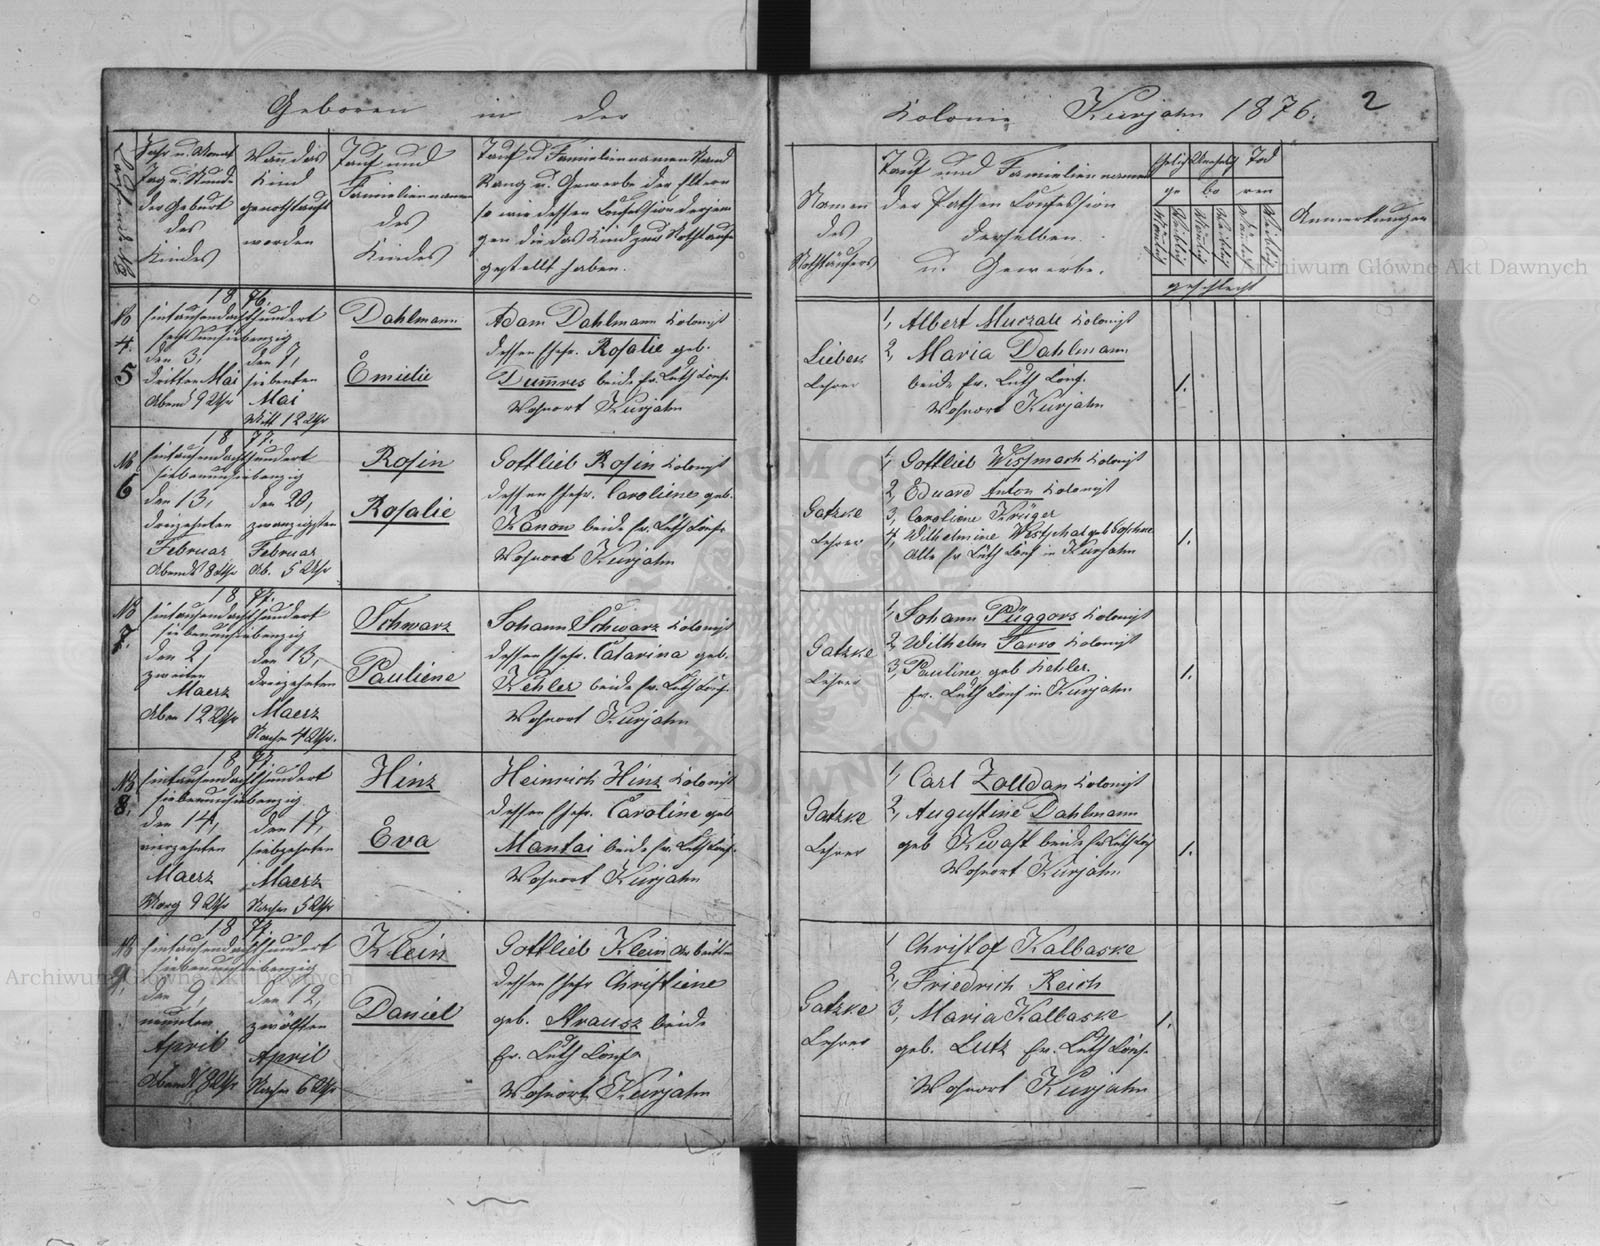 Geboren in der
Kolonie Kurjahn 1876. 2
Jahr u. Monat
Tag u. Stunde
der Geburt
des
Kindes
Wann das
Kind
genothtauft
worden
Tauf und
Familiennamen
des
Kindes
Tauf u Familiennamen Stand
Rang u. Gewerbe der Eltern
so wie dessen Confession derjeni
gen die das Kind zur Nothtaufe
gestellt haben.
Namen
des
Nothtäufers
Tauf und Familiennamen
der Pathen Confession
derselben
u. Gewerbe.
Ehelich Unehelich Tod
ge bo ren
Männlich Weiblich Männlich Weiblich Männlich Weiblich
geschlecht
Anmerkungen
No
4.
5
18
eintausendachthundert
sechsundsiebenzig
den 3,
dritten Mai
Abend 9 Uhr
76.
den 7,
siebenten
Mai
Mitt 12 Uhr
Dahlmann
Emielie
Adam Dahlmann Kolonist
dessen Ehefr. Rosalie geb.
Dummres beide Ev. Luth Conf.
Wohnort Kurjahn
Liebeck
Lehrer
1, Albert Murzau Kolonist
2, Maria Dahlmann
beide Ev. Luth Conf.
Wohnort Kurjahn
1.
No
6
18 77.
eintausendachthundert
siebenundsiebenzig
den 13,
dreizehnten
Februar
Abends 8 Uhr
den 20,
zwanzigsten
Februar
Ab. 5 Uhr
Rosin
Rosalie
Gottlieb Rosin Kolonist
dessen Ehefr. Caroliene geb.
Kanon beide Ev. Luth Conf.
Wohnort Kurjahn
Gatzke
Lehrer
1, Gottlieb Wistmach Kolonist
2, Eduard Anton Kolonist
3, Caroline Krüger
4, Wilhelmine Westphal geb
Alle Ev Luth Conf in Kurjahn
1.
No
7.
18 77.
eintausendachthundert
siebenundsiebenzig
den 2,
zweiten
Maerz
Aben 12 Uhr
den 13,
dreizehnten
Maerz
Nachm 4 Uhr.
Schwarz
Pauliene
Johann Schwarz Kolonist
dessen Ehefr. Catarina geb.
Kehler beide Ev. Luth Conf.
Wohnort Kurjahn
Gatzke
Lehrer
1, Johann Püggors Kolonist
2, Wilhelm Farro Kolonist
3, Pauline, geb Kehler.
Ev. Luth Conf in Kurjahn
1.
No
8.
18 77.
eintausendachthundert
siebenundsiebenzig
den 14,
vierzehnten
Maerz
Morg 9 Uhr
den 17,
siebzehnten
Maerz
Nachm 5 Uhr
Hinz
Eva
Heinrich Hinz Kolonist
dessen Ehefr. Caroline geb
Mantai beide Ev. Luth Conf.
Wohnort Kurjahn
Gatzke
Lehrer
1, Carl Zolldan Kolonist
2, Augustine Dahlmann
geb Kwast beide Ev Luth Conf
Wohnort Kurjahn
1.
No
9,
18 77.
eintausendachthundert
siebenundsiebenzig
den 9,
neunten
April
Abends 8 Uhr
den 12,
zwölften
April
Nachm 6 Uhr
Klein
Daniel
Gottlieb Klein Arbeiter
dessen Ehefr Christiene
geb. Krausz beide
Ev. Luth Conf.
Wohnort Kurjahn
Gatzke
Lehrer
1 Christof Kalbaske
2, Friedrich Reich
3, Maria Kalbaske
geb. Lutz Ev. Luth Conf.
Wohnort Kurjahn
1.
Archiwum Główne Akt Dawnych
Archiwum Główne Akt Dawnych